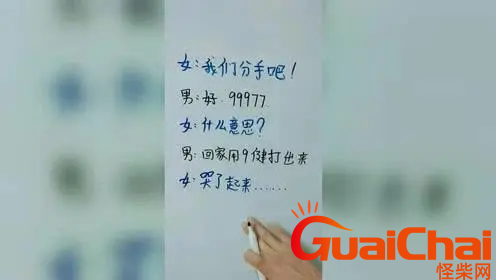 女:我们分手吧!
男:好.99977.
女:什么意思?
男:回家用9健打出来
女:哭了起来……
GuaiChai
怪柴网